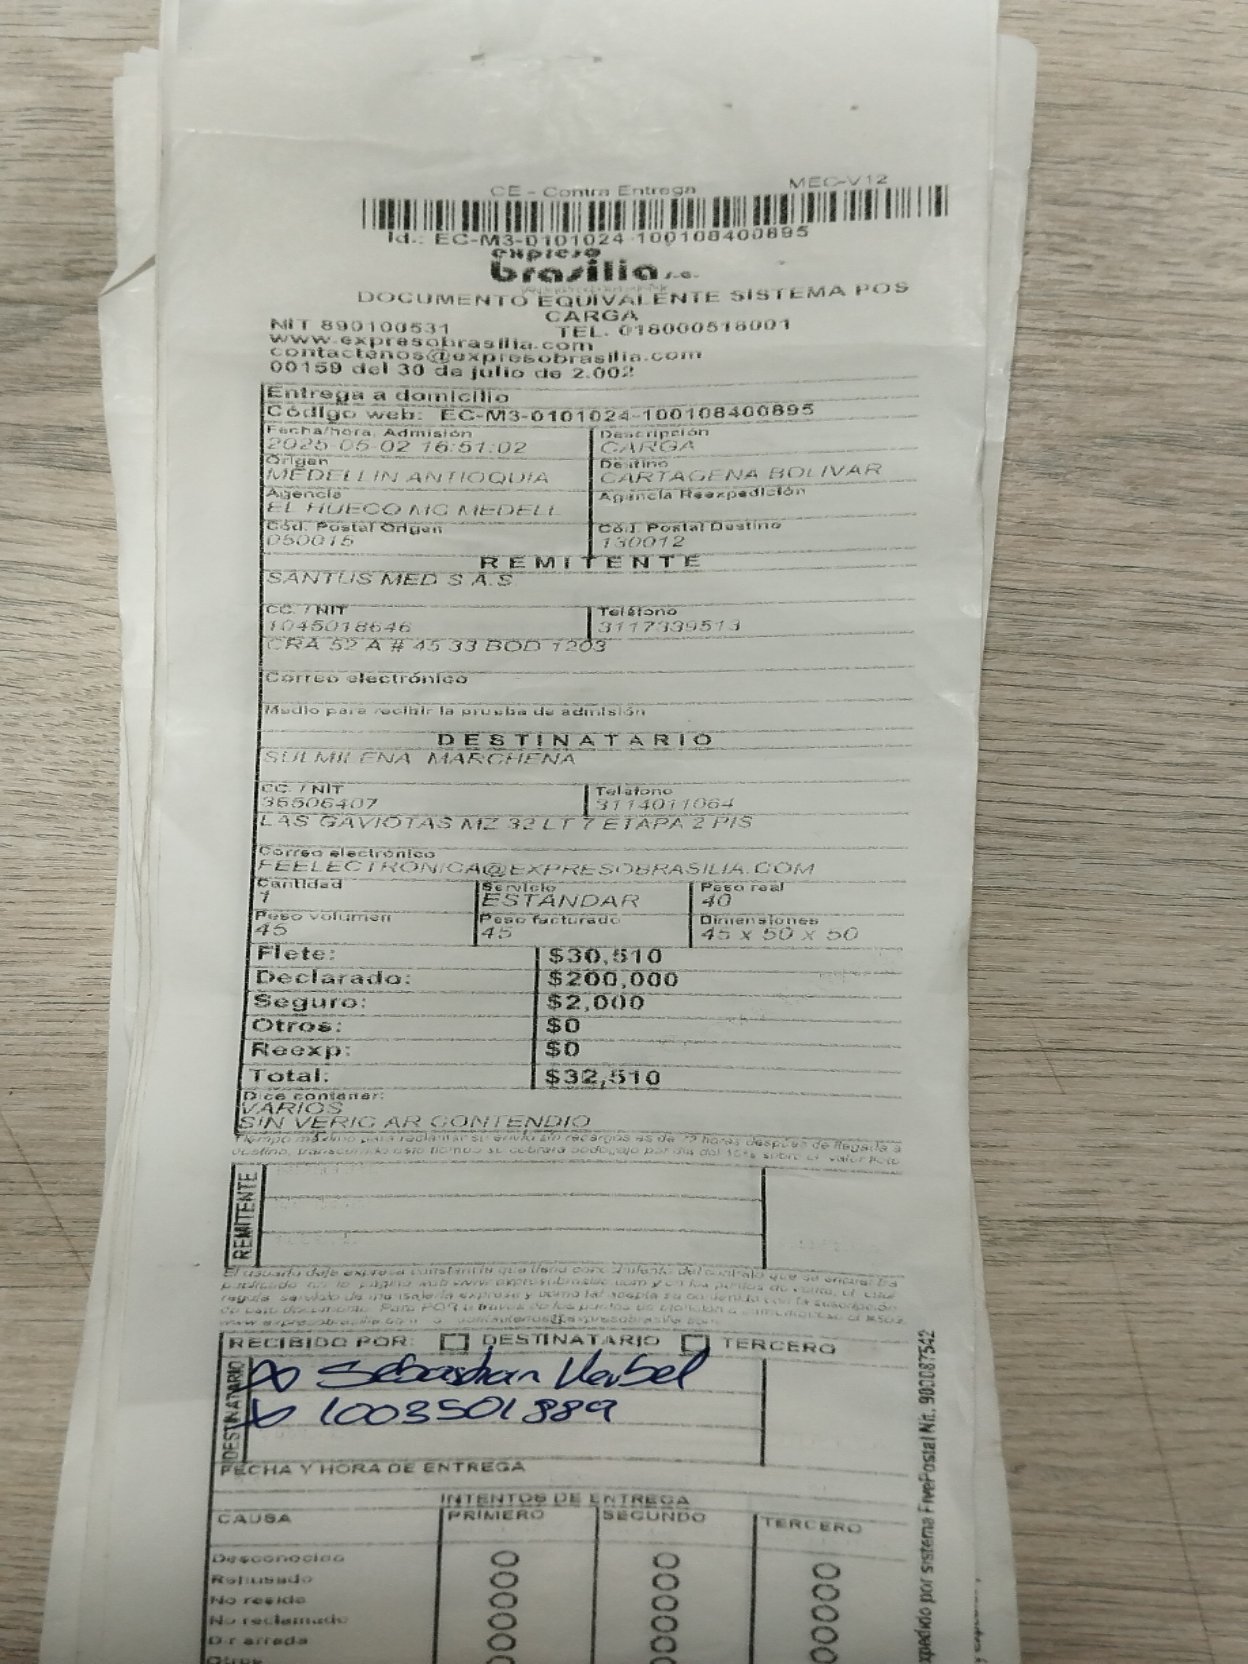 CE - Contra Entrega MEC-V12
Id.: EC-M3-0101024-100108400895
expreso
brasilia s.a.
DOCUMENTO EQUIVALENTE SISTEMA POS
CARGA
NIT 890100531 TEL. 018000518001
www.expresobrasilia.com
contactenos@expresobrasilia.com
00159 del 30 de julio de 2.002
Entrega a domicilio
Código web: EC-M3-0101024-100108400895
Fecha/hora. Admisión Descripción
2025-05-02 16:51:02 CARGA
Origen Destino
MEDELLIN ANTIOQUIA CARTAGENA BOLIVAR
Agencia Agencia Reexpedición
EL HUECO MG MEDELL
Cód. Postal Origen Cód. Postal Destino
050015 130012
REMITENTE
SANTUS MED S.A.S.
CC. / NIT Teléfono
1045018646 3117339513
CRA 52 A # 45 33 BOD 1203
Correo electrónico
Medio para recibir la prueba de admisión
DESTINATARIO
SULMILENA MARCHENA
CC. / NIT Teléfono
35506407 3114011064
LAS GAVIOTAS MZ 32 LT 7 ETAPA 2 PIS
Correo electrónico
FEELECTRONICA@EXPRESOBRASILIA.COM
Cantidad Servicio Peso real
1 ESTÁNDAR 40
Peso volumen Peso facturado Dimensiones
45 45 45 x 50 x 50
Flete: $30,510
Declarado: $200,000
Seguro: $2,000
Otros: $0
Reexp: $0
Total: $32,510
Dice contener:
VARIOS
SIN VERIG AR CONTENDIO
Tiempo máximo para reclamar su envío sin recargos es de 72 horas después de llegada a
REMITENTE
RECIBIDO POR: DESTINATARIO TERCERO
DESTINATARIO
Sebastian
1003501889
FECHA Y HORA DE ENTREGA
INTENTOS DE ENTREGA
CAUSA PRIMERO SEGUNDO TERCERO
Desconocido
Rehusado
No reside
No reclamado
Dir errada
Otros
expedido por sistema FivePostal Nit.: 900087542